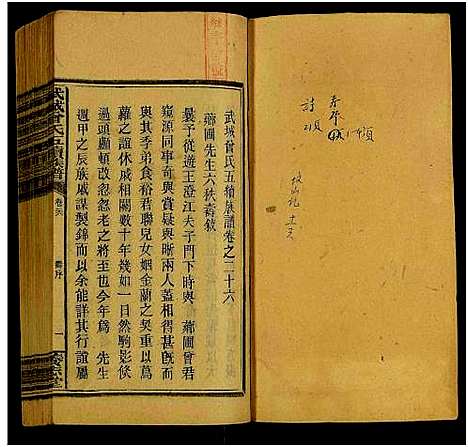 武城曾氏五續族譜卷之二十六
蘅圃先生六秩壽敘
曩予從遊王澄江夫子門下時與 蘅圃曾君
窺源同事奇與賞疑與晰兩人蓋相得甚旣而
與其季弟食裕君聯兒女姻金蘭之契重以葛
蘿之誼休戚相關數十年幾如一日然駒影倏
過頭顱頓改忽忽老之將至也今年爲 先生
週甲之辰族戚謀製錦而以余能詳其行誼屬
武城曾氏五續族譜
卷之二十六
壽序
一
壽序
詩